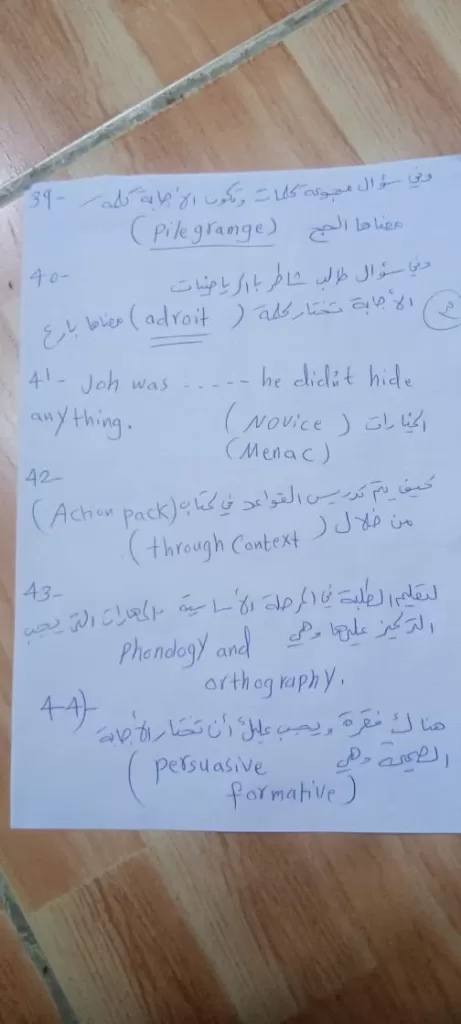 39- وفي سؤال مجموعة كلمات وتكون الأجابة كلمة
معناها الحج (pilegrange)
40- وفي سؤال طالب شاطر بالرياضيات
الأجابة تختار كلمة (adroit) معناها بارع
41- Joh was ----- he didn't hide
anything. الخيارات (Novice)
(Menac)
42- كيف يتم تدريس القواعد في كتاب (Action pack)
من خلال (through Context)
43- لتعليم الطلبة في المرحلة الأساسية المهارات التي يجب
التركيز عليها وهي phonology and
orthography.
44) هناك فقرة ويجب عليك أن تختار الأجابة
الصحيحة وهي (persuasive
formative)